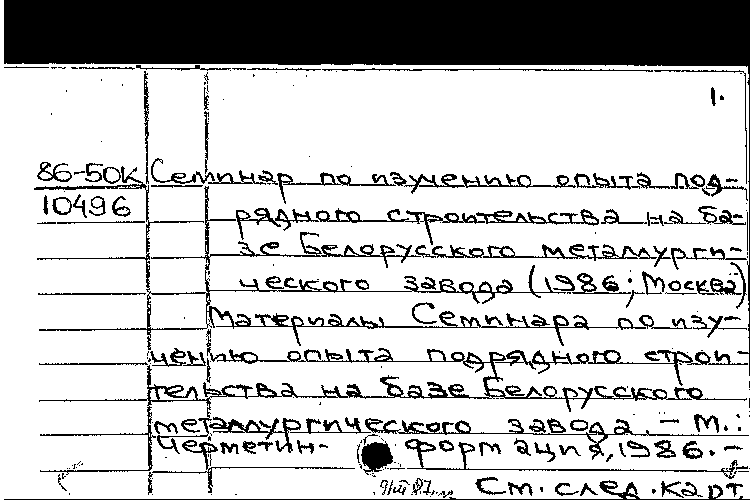 1.
86-50К Семинар по изучению опыта под-
10496 рядного строительства на ба-
зе Белорусского металлурги-
ческого завода (1986; Москва)
Материалы Семинара по изу-
чению опыта подрядного строи-
тельства на базе Белорусского
металлургического завода. - М.:
Черметин- формация, 1986. -
См. след. карт